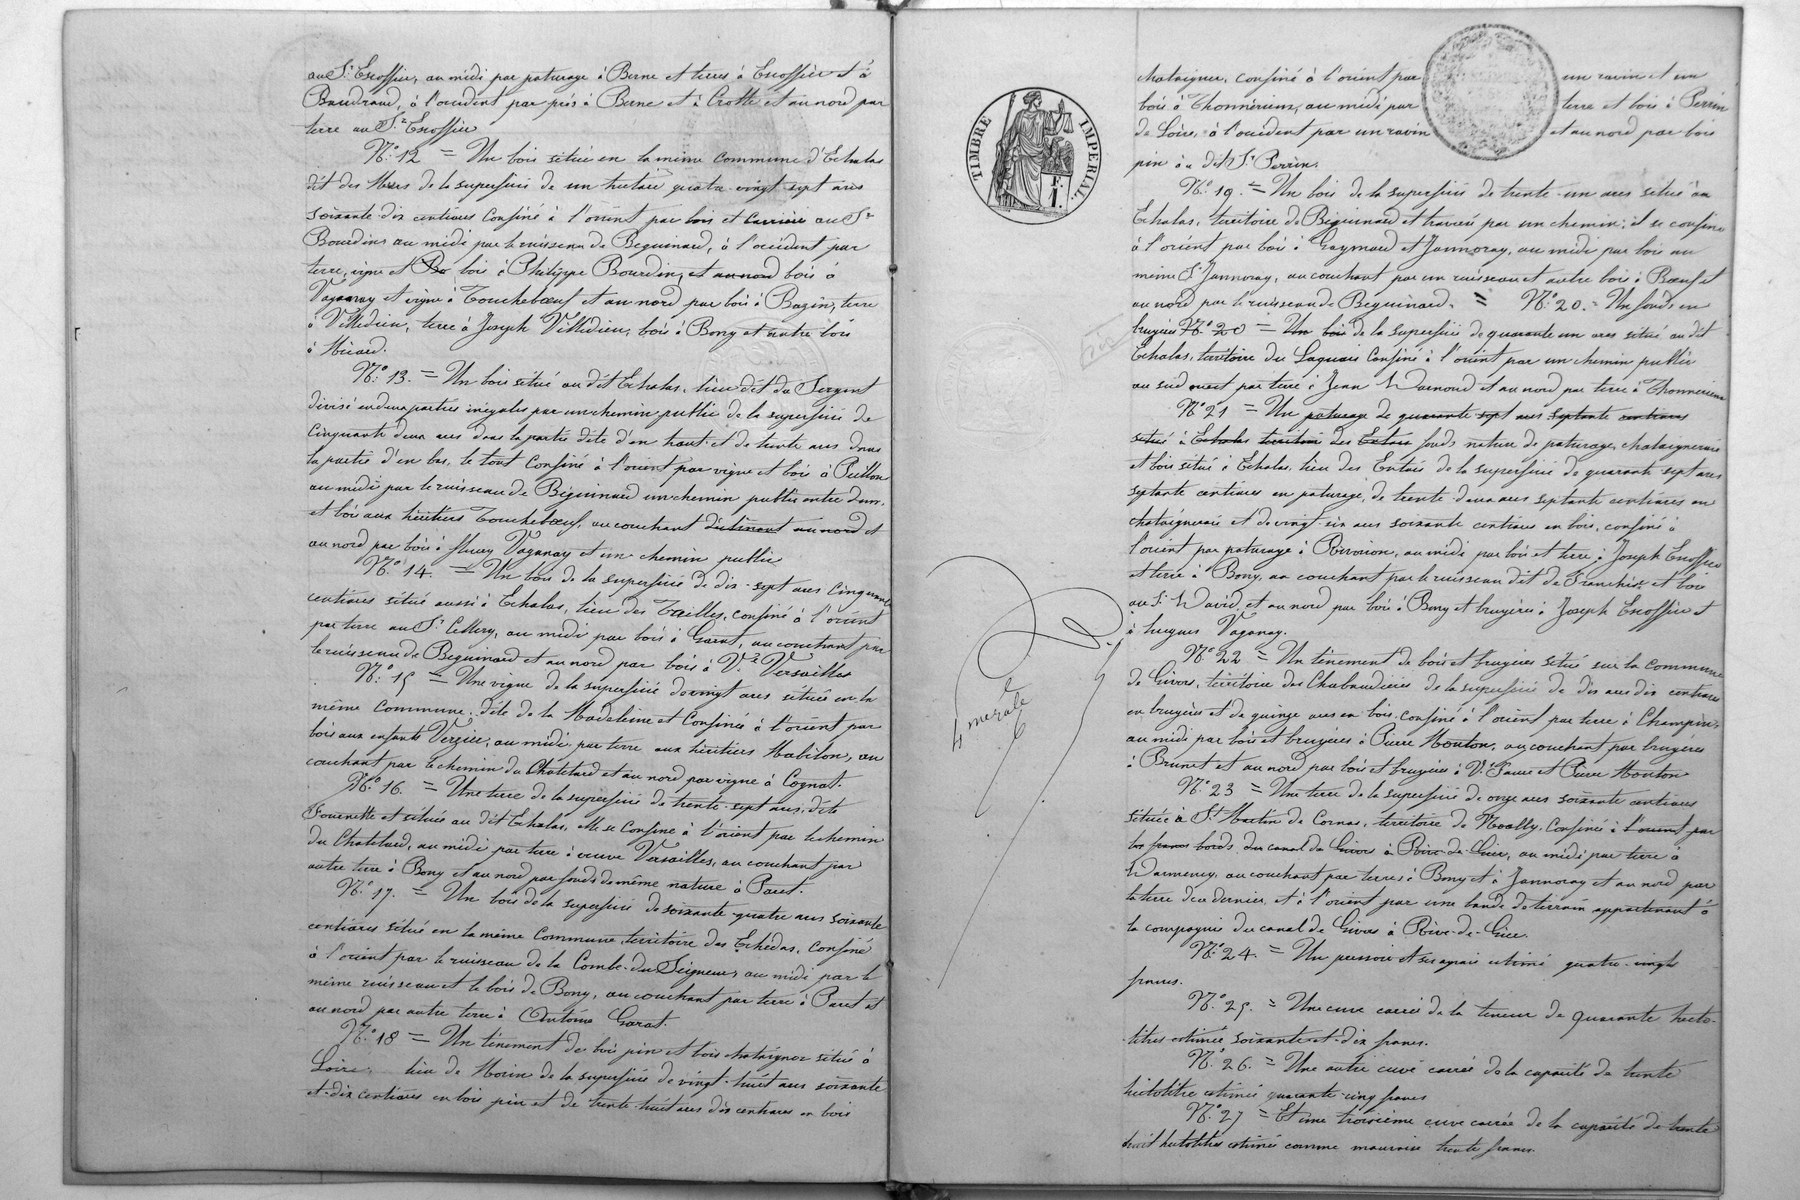 au Sr Escoffier, au midi par paturage à Berne et terres à Escoffier et à
Baudrand, à l'occident par prés à Berne et à Crotte et au nord par
terre au Sr Escoffier
No 12 = Un bois située en la même commune d'Echalas
dit des Mures de la superficie de un hectare quatre-vingt sept ares
soixante-dix centiares confiné à l'orient par bois et Carrière au Sr
Bourdin au midi par le ruisseau de Beguinard, à l'occident par
terre, vigne et Bo bois à Philippe Bourdin, et au nord bois à
Vaganay et vigne à Toucheboeuf et au nord par bois à Bazin, terre
à Villedieu, terre à Joseph Villedieu, bois à Bony et autre bois
à Micard.
No 13. = Un bois situé au dit Echalas, lieu dit du Sergent
divisé en deux parties inégales par un chemin public de la superficie de
cinquante deux ares dans la partie dite d'en haut et de trente ares dans
la partie d'en bas, le tout confiné à l'orient par vigne et bois à Peillon
au midi par le ruisseau de Béguinard un chemin public entre deux,
et bois aux héritiers Toucheboeuf, au couchant au nord et
au nord par bois à fleury Vaganay et un chemin public
No 14. = Un bois de la superficie de dix-sept ares cinquante
centiares situé aussi à Echalas, lieu des Trailles, confiné à l'orient
par terre au Sr Cellery, au midi par bois à Garat, au couchant par
le ruisseau de Beguinard et au nord par bois à Ve Versailles
No 15 = Une vigne de la superficie de vingt ares située en la
même Commune, dite de la Madeleine et Confinée à l'orient par
bois aux enfants Verzier, au midi par terre aux héritiers Mabilon, au
couchant par le chemin du Châtelard et au nord par vigne à Cognat.
No 16. = Une terre de la superficie de trente-sept ares, dite
Fournette et située au dit Echalas, elle se confine à l'orient par le chemin
du Chatelard, au midi par terre à veuve Versailles, au couchant par
autre terre à Bony et au nord par fonds de même nature à Paret.
No 17. = Un bois de la superficie de soixante-quatre ares soixante
centiares situé en la même Commune, territoire des Echédas, confiné
à l'orient par le ruisseau de la Combe-du-Seigneur, au midi par le
même ruisseau et le bois de Bony, au couchant par terre à Paret et
au nord par autre terre à Antoine Garat.
No 18 = Un tènement de bois pin et bois chataigner situé à
Loire, lieu de Morin de la superficie de vingt-huit ares soixante
et-dix centiares en bois pin et de trente-huit ares dix centiares en bois
TIMBRE IMPERIAL.
F. 1.
4me role
chataigner, confiné à l'orient par un ravin et un
bois à Thonnérieux, au midi par terre et bois à Perrin
de Loire, à l'occident par un ravin et au nord par bois
pin à dit Sr Perrin.
No 19. = Un bois de la superficie de trente-un ares situé à
Echalas, territoire de Béguinard et traversé par un chemin; il se confine
à l'orient par bois à Gaymard et Jannoray, au midi par bois au
même Sr Jannoray, au couchant par un ruisseau et autre bois à Boeuf et
au nord par le ruisseau de Beguinard. = No 20. = Un fonds en
bruyères No 20 = Un bois de la superficie de quarante un ares situé au dit
Echalas, territoire du Laquais Confiné à l'orient par un chemin public
au sud ouest par terre à Jean Darnoud et au nord par terre à Thonnerieux
No 21 = Un paturage de quarante sept ares septante centiares
situé à Echalas territoire des Entais fonds nature de paturage, chataigneraie
et bois situé à Echalas, lieu des Entais de la superficie de quarante sept ares
septante centiares en paturage, de trente-deux ares septante centiares en
chataigneraie et de vingt-six ares soixante centiares en bois, confiné à
l'orient par paturage à Rivoiron, au midi par bois et terre à Joseph Escoffier
et terre à Bony, au couchant par le ruisseau dit de Franchise et bois
au Sr David, et au nord par bois à Bony et bruyères à Joseph Escoffier et
à hugues Vaganay.
No 22 = Un tènement de bois et bruyères situé sur la commune
de Givors, territoire des Chabaudières de la superficie de dix ares dix centiares
en bruyères et de quinze ares en bois confiné à l'orient par terre à Champin,
au midi par bois et bruyères à Pierre Mouton, au couchant par bruyères
à Brunet et au nord par bois et bruyères à Ve Faure et Pierre Mouton
No 23 = Une terre de la superficie de onze ares soixante centiares
située à St Martin de Cornas, territoire de Moolly, confiné à l'orient par
les francs bords du canal de Givors à Rive-de-Gier, au midi par terre à
Darmency, au couchant par terres à Bony et à Jannoray et au nord par
la terre de ce dernier, et à l'orient par une bande de terrain appartenant à
la compagnie du canal de Givors à Rive-de-Gier.
No 24. = Un pressoir et ses agrais estimé quatre-vingts
francs.
No 25. = Une cuve carrée de la teneur de quarante hecto-
litres estimée soixante-et-dix francs.
No 26. = Une autre cuve carrée de la capacité de trente
hectolitre estimée quarante-cinq francs
No 27 = Et une troisième cuve carrée de la capacité de trente
huit hectolitres estimée comme mauvaise trente francs.